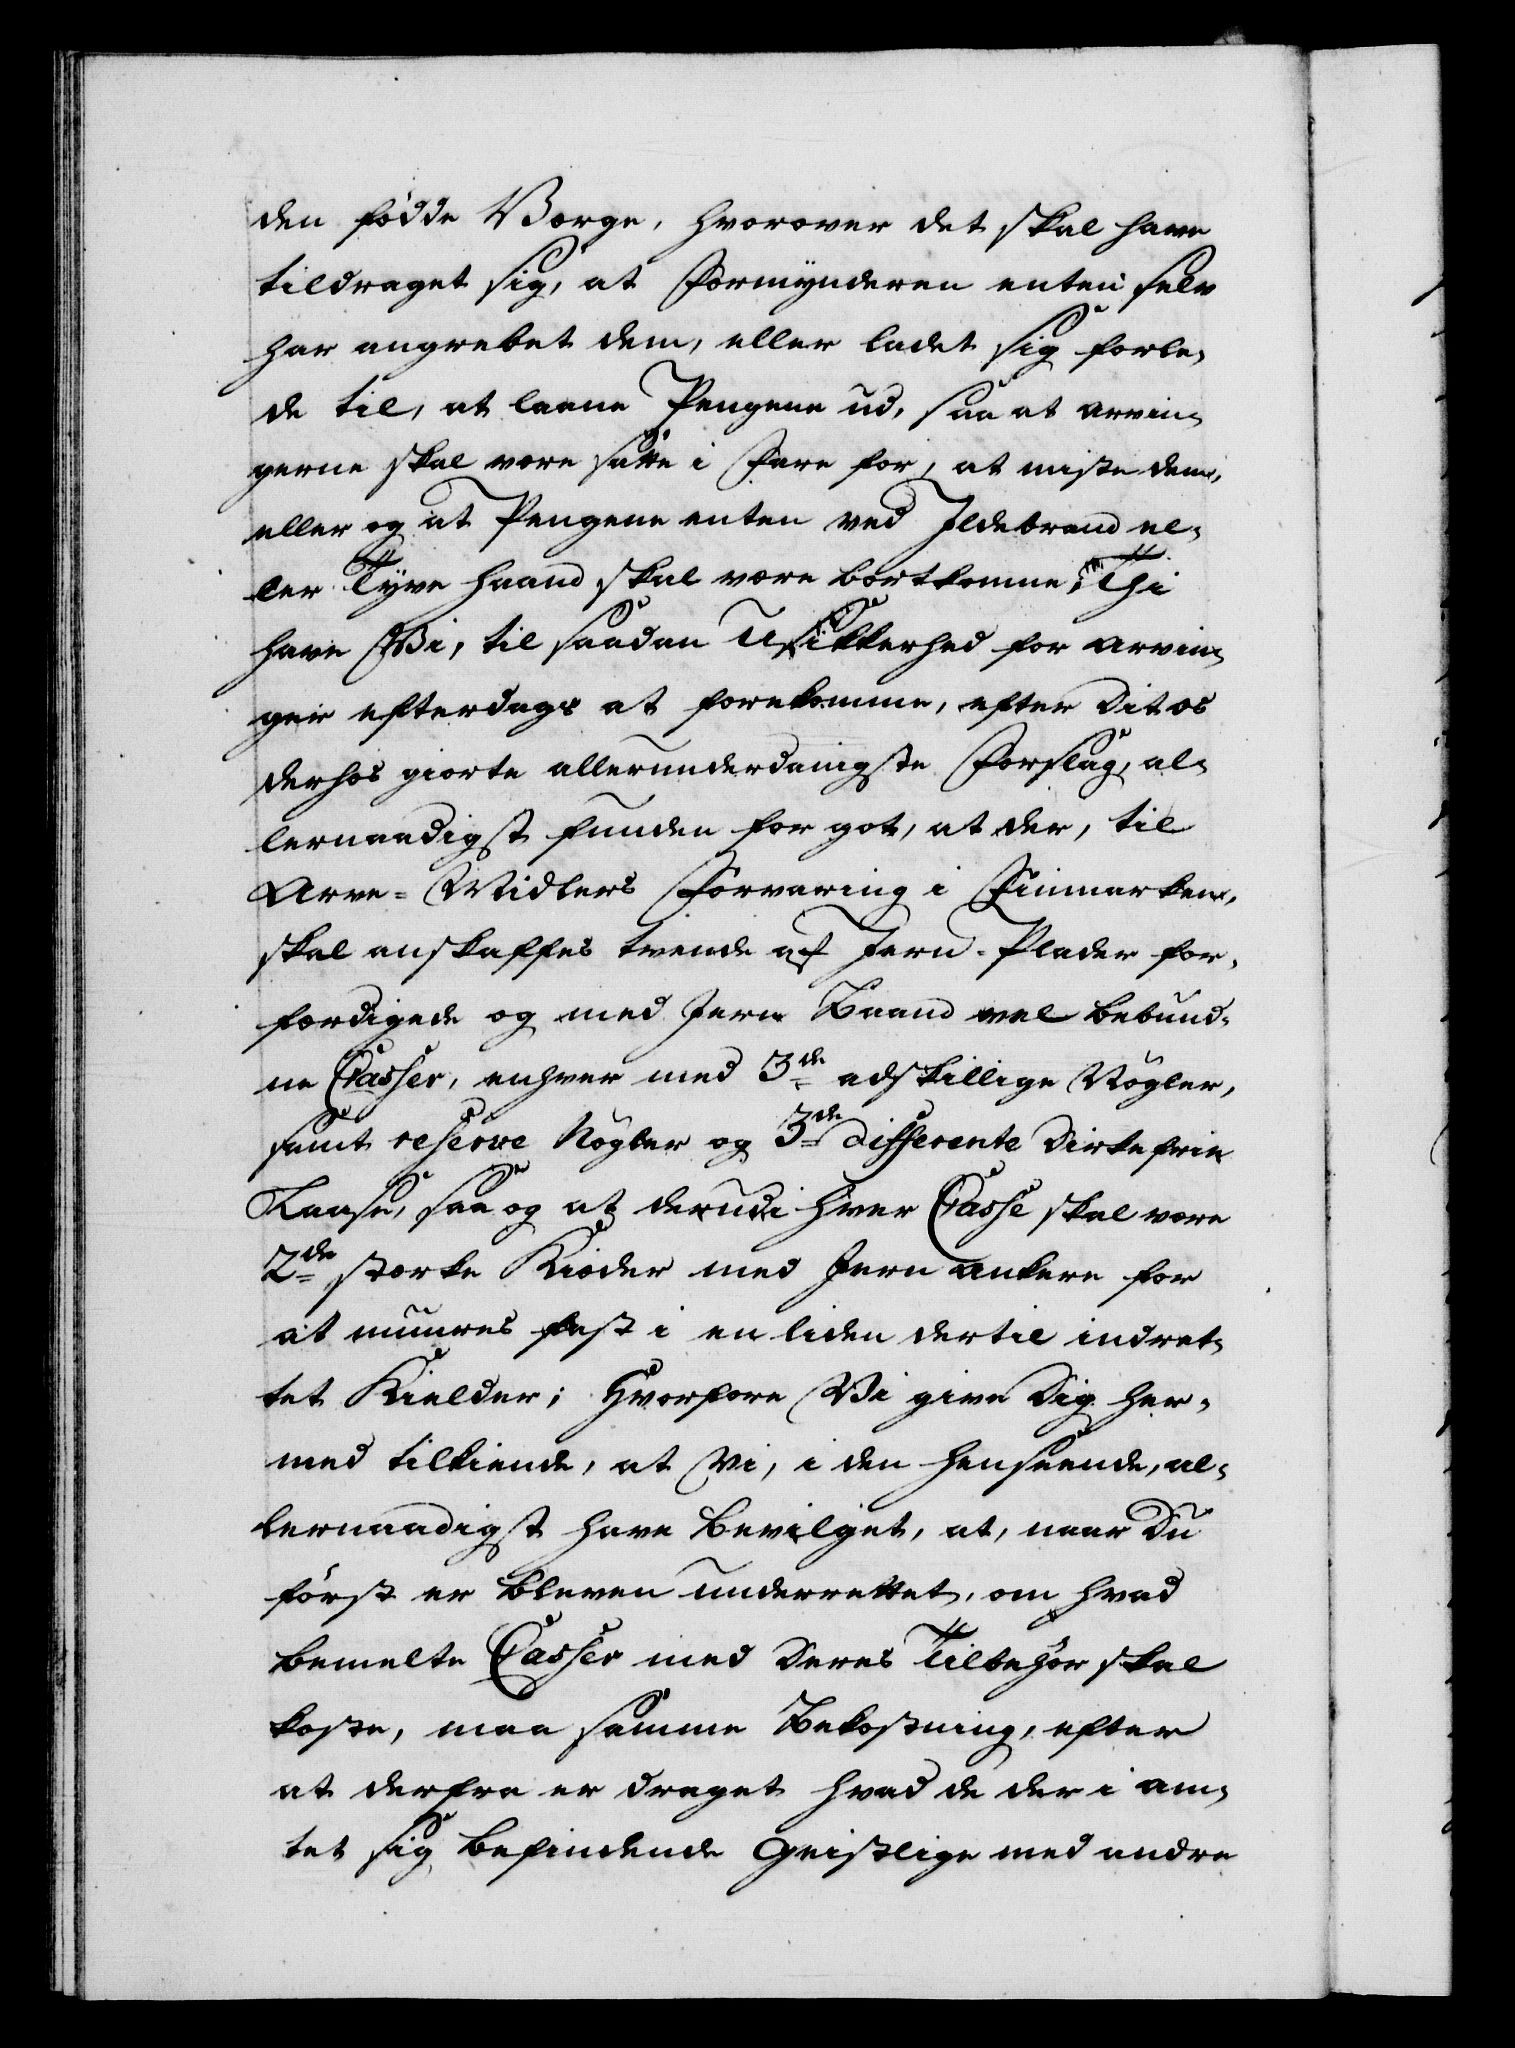 den fødde Værge, hvorover det skal have
tildraget sig, at Formynderen enten selv
har angrebet dem, eller ladet sig forle,
de til, at laane Pengene ud, saa at arvin,
gerne skal være satte i Fare for, at miste dem,
eller og at Pengene enten ved Ildebrand el,
ler Tyve Haand skal være bortkomne; Thi
have Vi, til saadan Usikkerhed for arvin,
ger efterdags at forekomme, efter Dit os
derhos giorte allerunderdanigste Forslag, al,
lernaadigst funden for got, at der, til
Arve-Midlers Forvaring i Finmarken,
skal anskaffes tvende af Jern-Plader for,
færdigede og med Jern Baand vel bebund,
ne Casser, enhver med 3de adskillige Nøgler,
samt reserve Nøgler og 3de differente Dirkefrie
Laase, saa og at derudi hver Casse skal være
2de stærke Kiæder med Jern ankere for
at muures fast i en liden dertil indret,
tet Kielder; Hvorfore Vi give Dig her,
med tilkiende, at Vi, i den henseende, al,
lernaadigst have bevilget, at, naar Du
først er bleven underrettet, om hvad
bemelte Casser med Deres Tilbehør skal
koste, maa samme Bekostning, efter
at derfra er draget hvad de der i am,
tet sig befindende Geistlige med andre